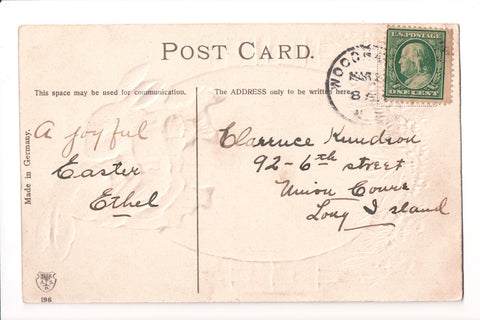 POST CARD.
This space may be used for communication.
The ADDRESS only to be written here.
U.S. POSTAGE
ONE CENT
WOOD
MAR
8 A
A joyful
Easter
Ethel
Clarence
92-6th street
Union Course
Long Island
Made in Germany.
196